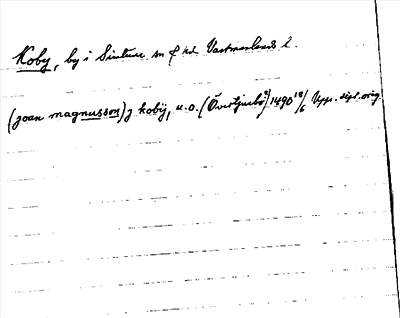 Koby, by i Simtuna sn o hd Västmanlands l.
(joan magnusson) j koby, u.o. (Överljusbo?) 1490 18/6 Upps. dipl. orig.